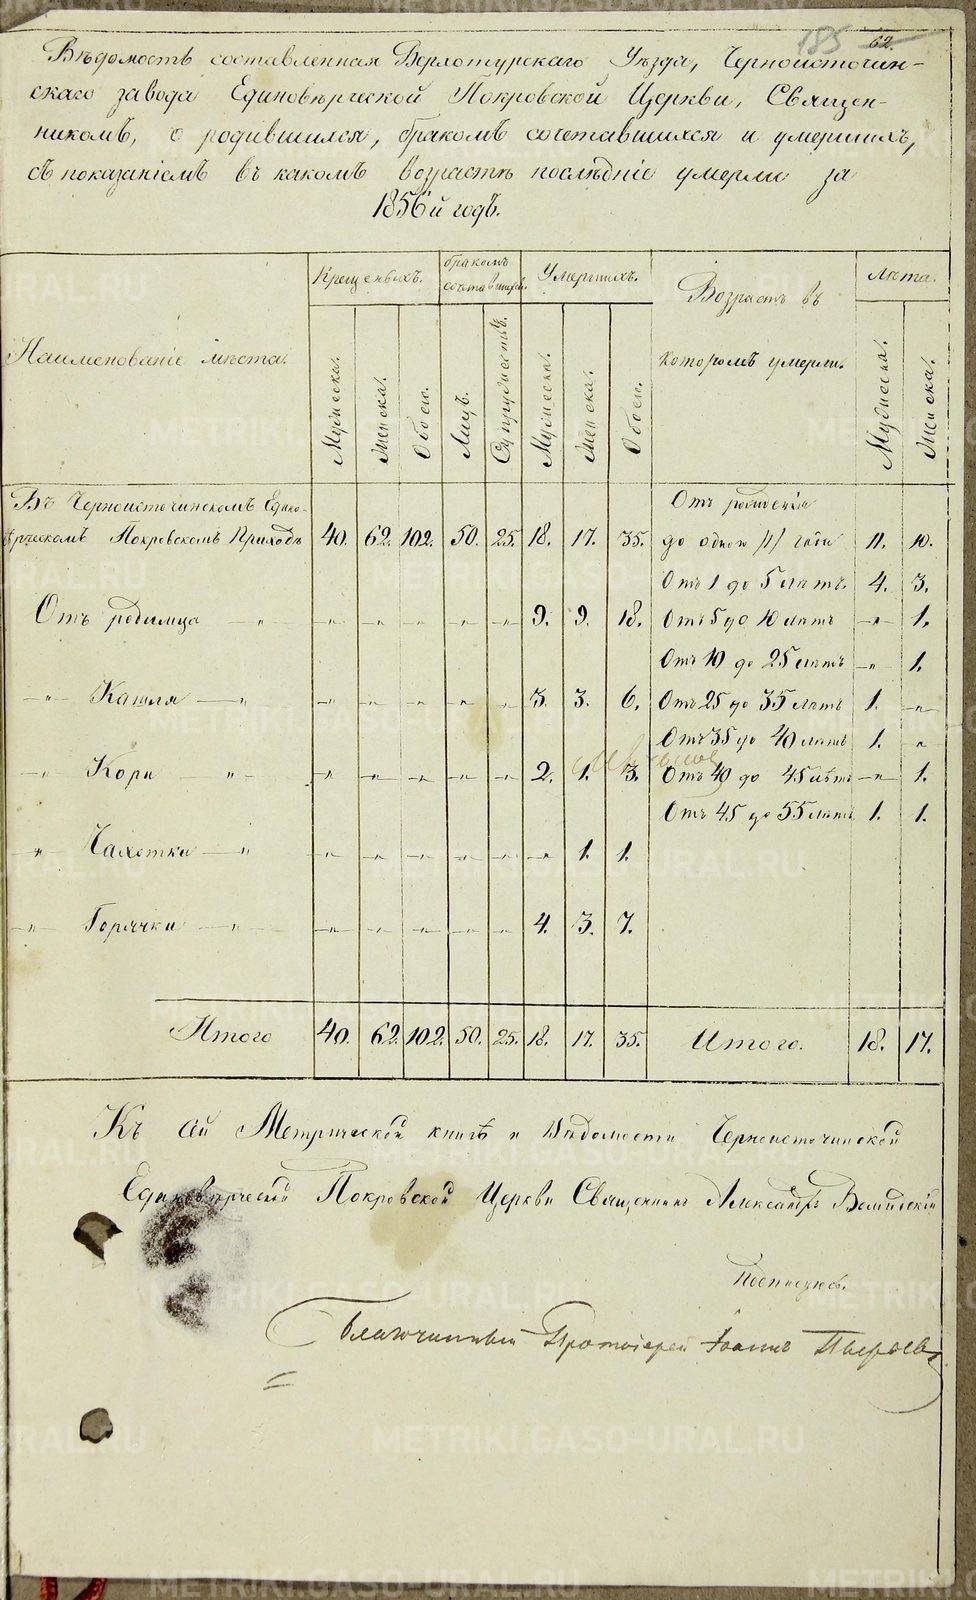 185 62.
Вѣдомость составленная Верхотурскаго Уѣзда, Черноисточин-
скаго завода Единовѣрческой Покровской Церкви, Священ-
никомъ, о родившихся, бракомъ сочетавшихся и умершихъ,
съ показаніемъ въ какомъ возрастѣ послѣдніе умерли за
1856й годъ.
Наименованіе мѣста. Крещеныхъ. бракомъ сочетавшихся. Умершихъ. Возрастъ въ которомъ умерли. Лѣта.
Мужеска. Женска. Обоего. Лицъ. Супружествъ. Мужеска. Женска. Обоего. Мужеска. Женска.
Въ Черноисточинскомъ Едино- Отъ рожденія
вѣрческомъ Покровскомъ Приходѣ 40. 62. 102. 50. 25. 18. 17. 35. до одного /1/ года 11. 10.
Отъ 1 до 5 лѣтъ. 4. 3.
Отъ родимца — „ — „ — „ — „ — „ — „ 9. 9. 18. Отъ 5 до 10 лѣтъ — „ — 1.
Отъ 10 до 25 лѣтъ — „ — 1.
— „ — Кашля — „ — „ — „ — „ — „ — „ 3. 3. 6. Отъ 25 до 35 лѣтъ 1. — „ —
Отъ 35 до 40 лѣтъ 1. „
— „ — Кори — „ — „ — „ — „ — „ — „ 2. 1. 3. Отъ 40 до 45 лѣтъ — „ — 1.
Отъ 45 до 55 лѣтъ 1. 1.
— „ — Чахотки — „ — „ — „ — „ — „ — „ — „ 1. 1.
— „ — Горячки — „ — „ — „ — „ — „ — „ 4. 3. 7.
Итого 40. 62. 102. 50. 25. 18. 17. 35. Итого. 18. 17.
Къ сей Метрической книгѣ и Вѣдомости Черноисточинской
Единовѣрческой Покровской Церкви Священникъ Александръ
подписуюсь.
Благочинный Протоіерей Іоаннъ
METRIKI.GASO-URAL.RU